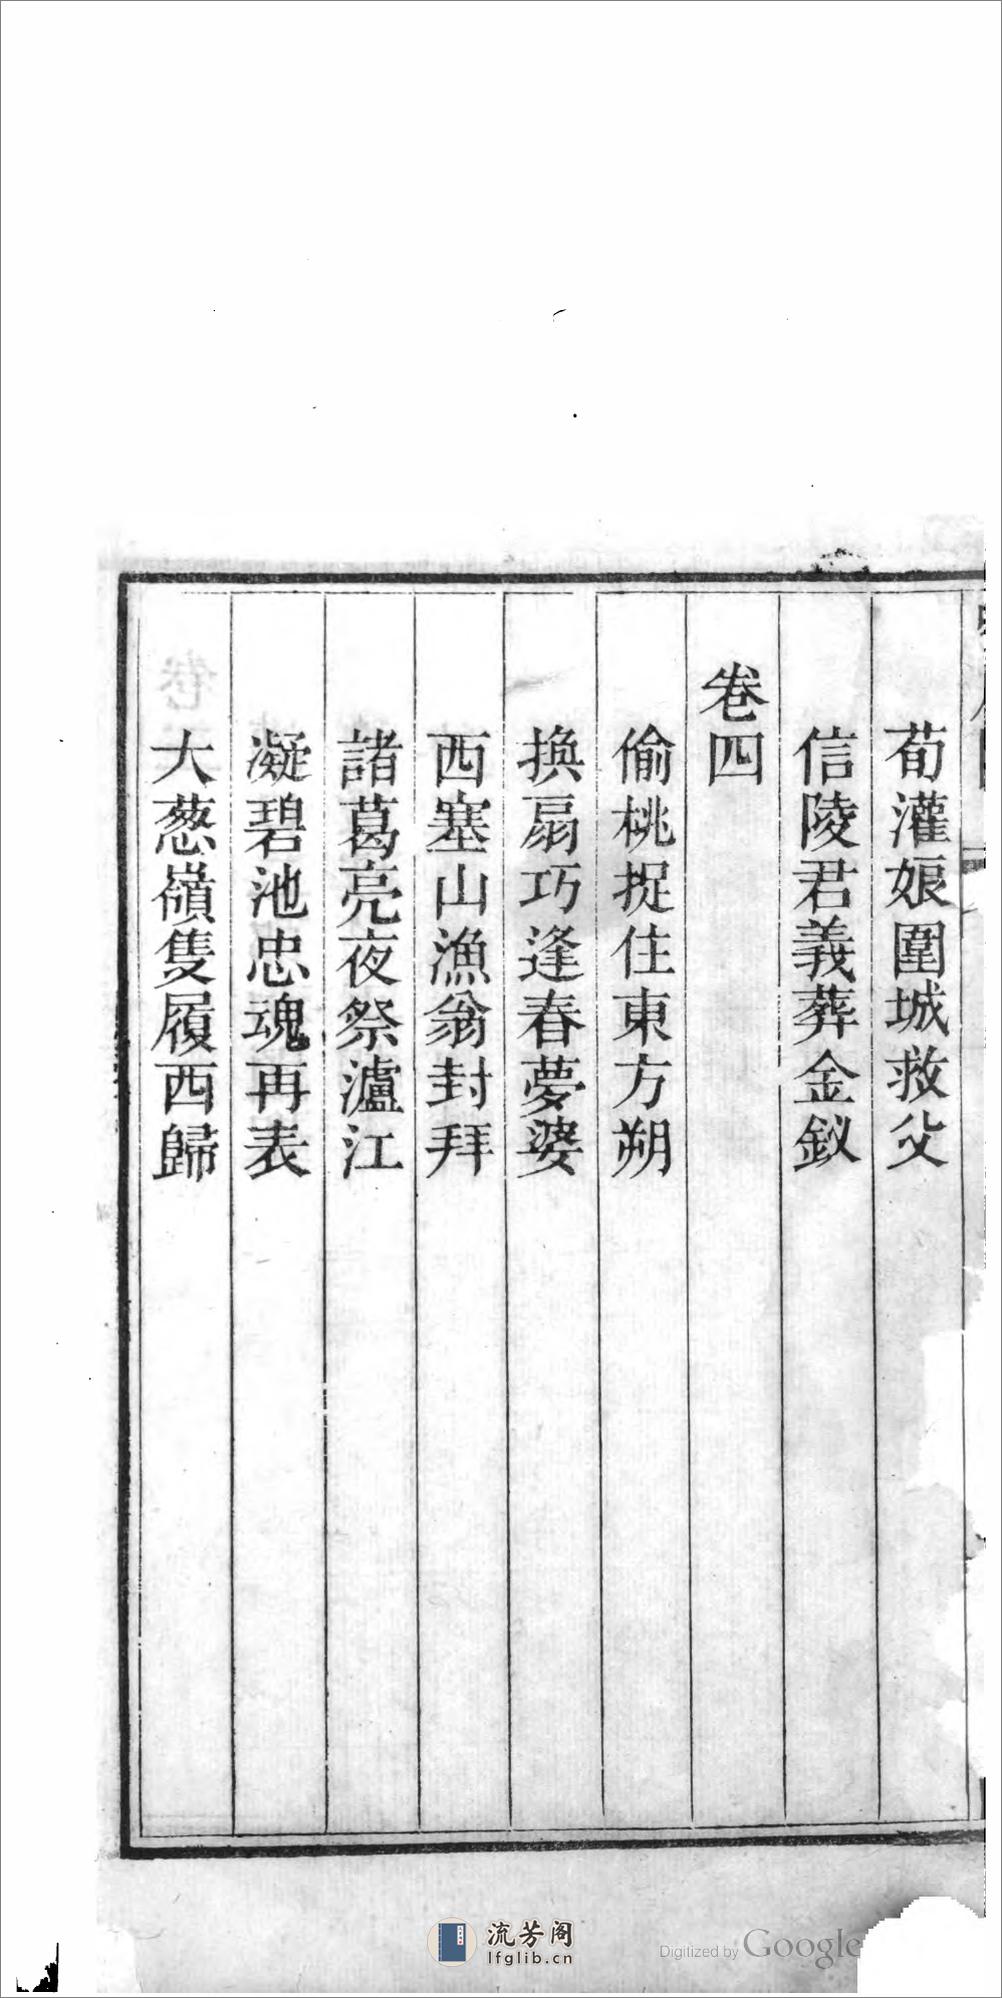 荀灌娘圍城救父
信陵君義葬金釵
卷四
偷桃捉住東方朔
換扇巧逢春夢婆
西塞山漁翁封拜
諸葛亮夜祭瀘江
凝碧池忠魂再表
大葱嶺隻履西歸
流芳阁
lfglib.cn
Digitized by Google